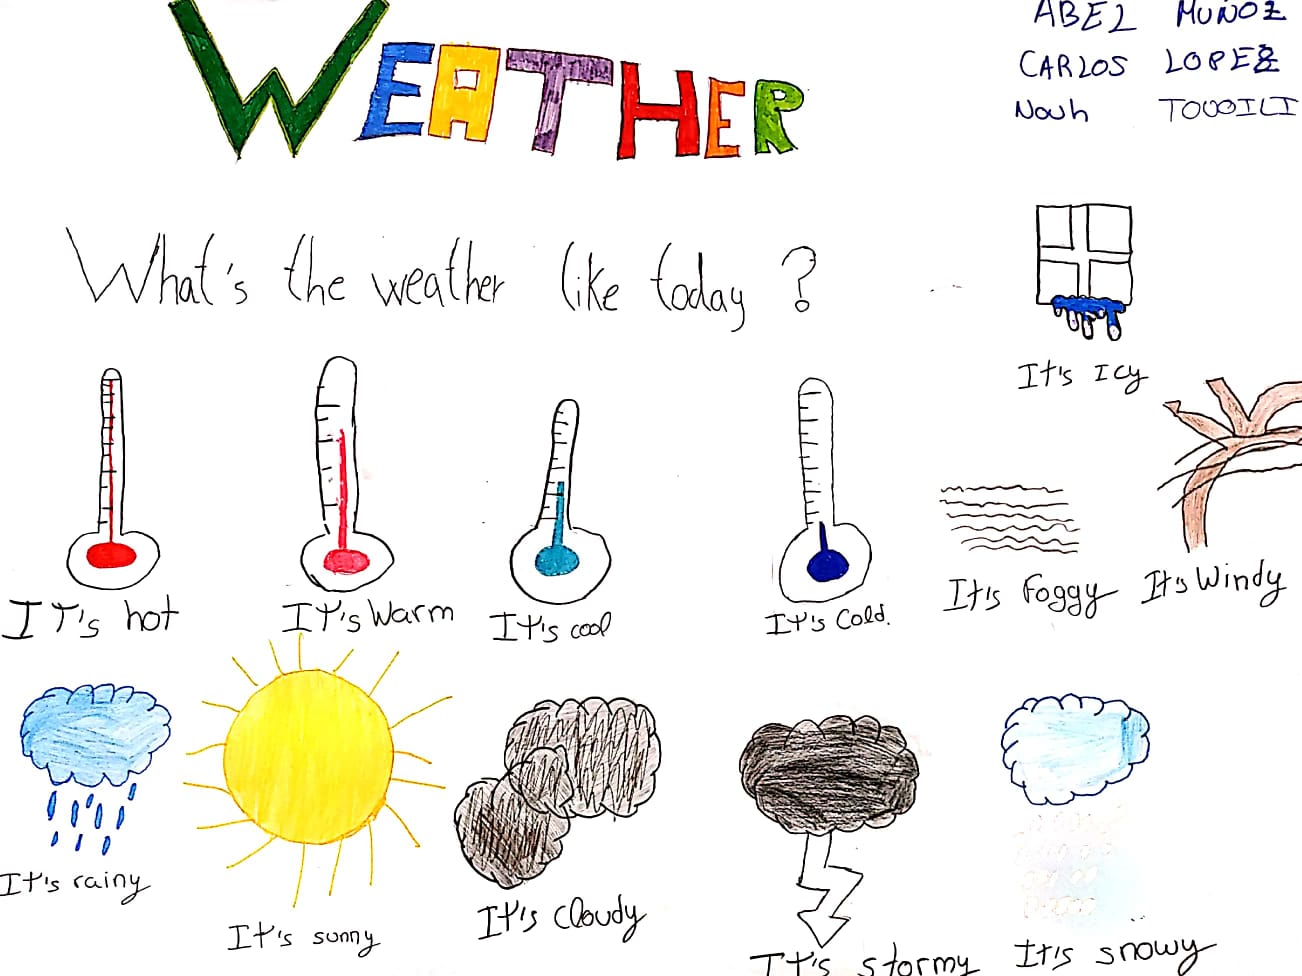 WEATHER
ABEL MUÑOZ
CARLOS LOPEZ
Nouh TOUOILI
What's the weather like today ?
It's Icy
IT's hot
It's Warm
It's cool
It's Cold.
It's Foggy
It's Windy
It's rainy
It's sunny
It's cloudy
It's stormy
It's snowy